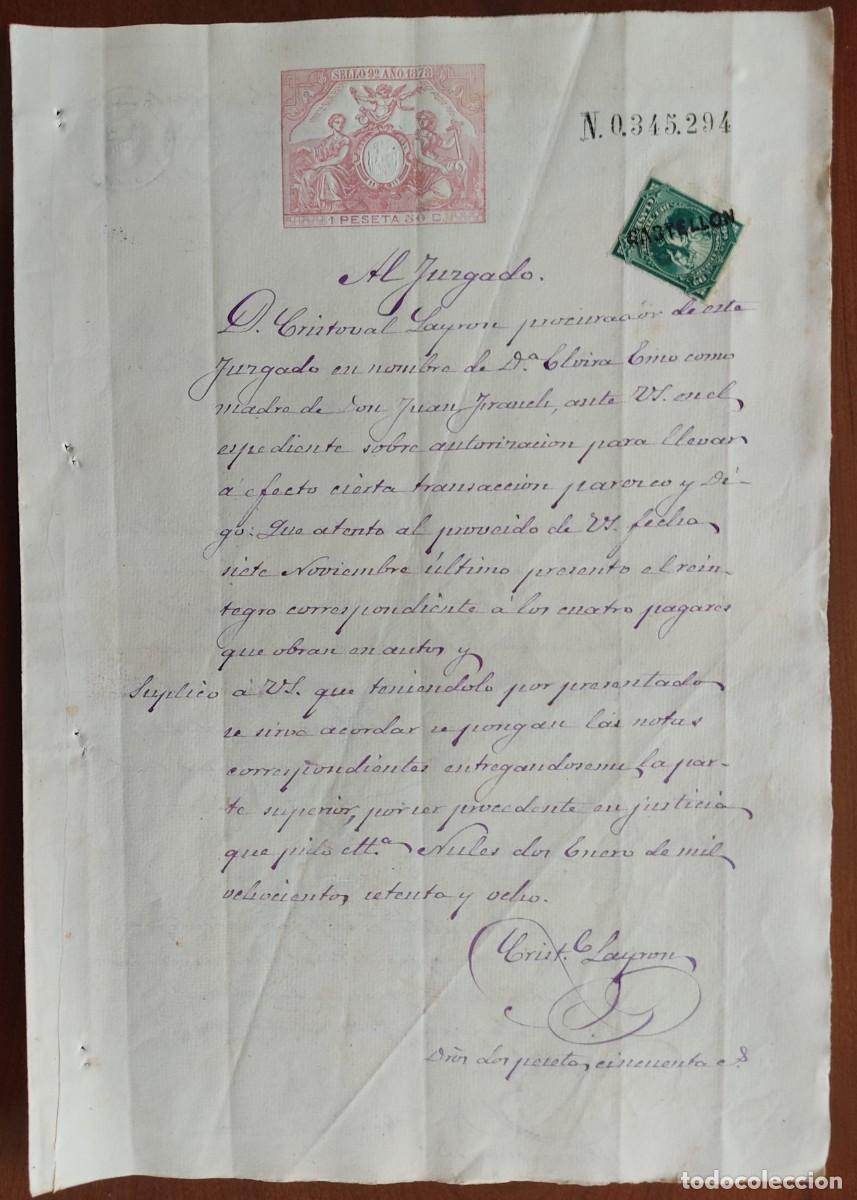 SELLO 9º AÑO 1878
1 PESETA 50 C.
N. 0.345.294
CASTELLON
Al Juzgado.
D. Cristoval Layron procurador de este
Juzgado en nombre de D.ª Elvira Eino como
madre de Don Juan Franch, ante VS. en el
espediente sobre autorizacion para llevar
á efecto cierta transaccion parezco y Di-
go: Que atento al proveido de VS. fecha
siete Noviembre último presento el rein-
tegro correspondiente á los cuatro pagares
que obran en autos y
Suplico á VS. que teniendolo por presentado
se sirva acordar se pongan las notas
correspondientes entregandoseme la par-
te superior, por ser procedente en justicia
que pido ettª. Nules dos Enero de mil
ochocientos setenta y ocho.
Crist.º Layron
Dros dos pesetas cincuenta cs
todocoleccion